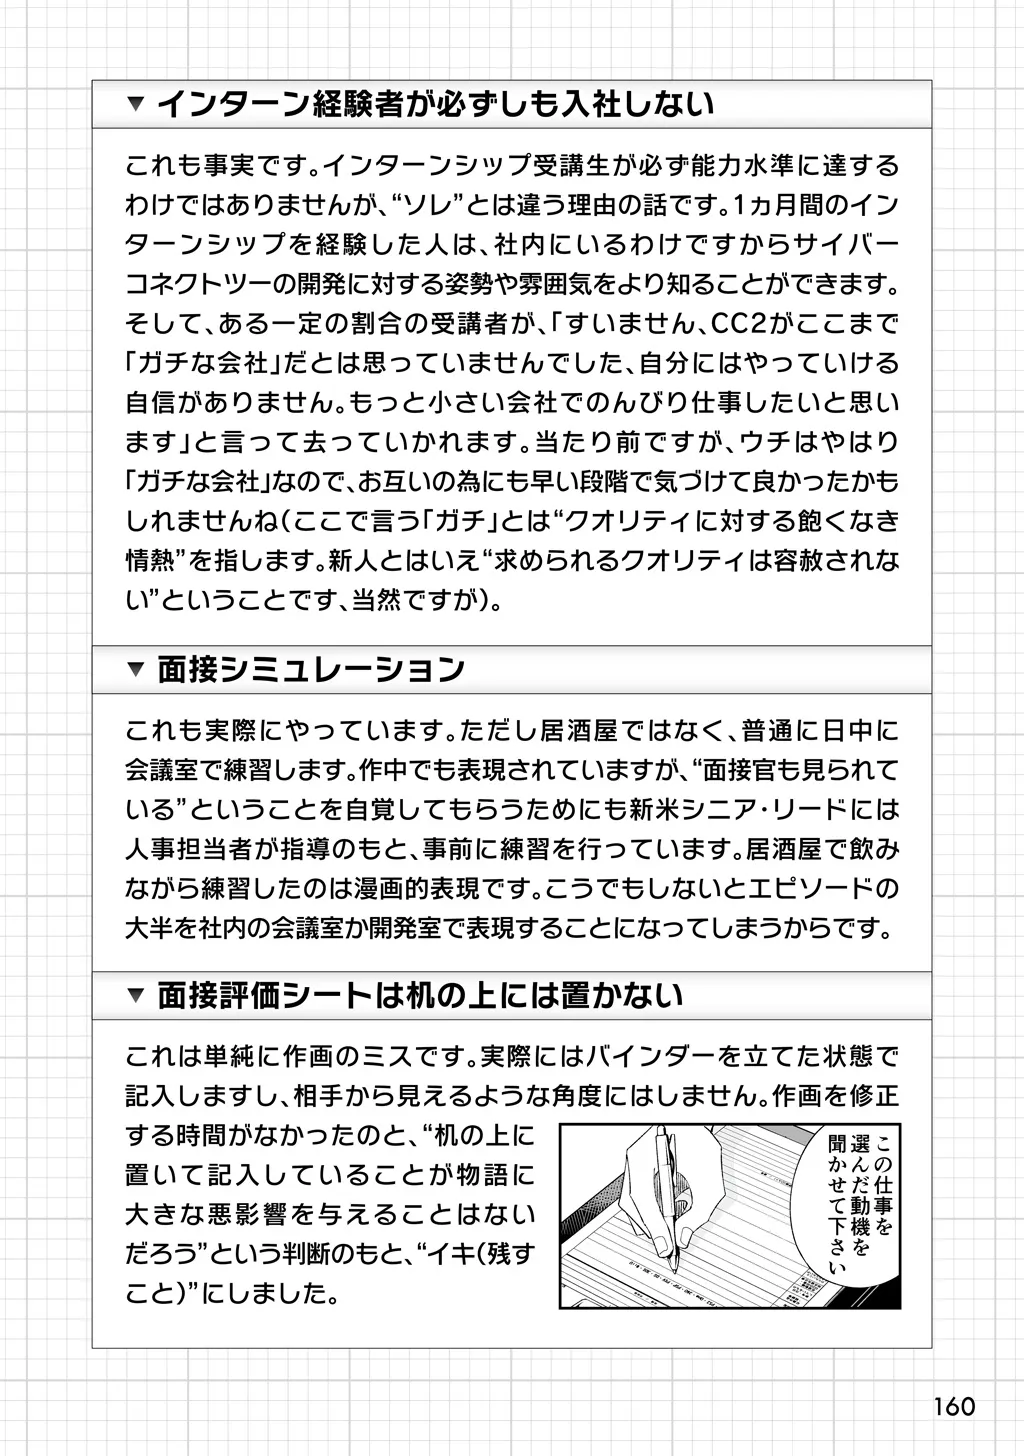 ▼ インターン経験者が必ずしも入社しない
これも事実です。インターンシップ受講生が必ず能力水準に達する
わけではありませんが、“ソレ”とは違う理由の話です。1ヵ月間のイン
ターンシップを経験した人は、社内にいるわけですからサイバー
コネクトツーの開発に対する姿勢や雰囲気をより知ることができます。
そして、ある一定の割合の受講者が、「すいません、CC2がここまで
「ガチな会社」だとは思っていませんでした、自分にはやっていける
自信がありません。もっと小さい会社でのんびり仕事したいと思い
ます」と言って去っていかれます。当たり前ですが、ウチはやはり
「ガチな会社」なので、お互いの為にも早い段階で気づけて良かったかも
しれませんね（ここで言う「ガチ」とは“クオリティに対する飽くなき
情熱”を指します。新人とはいえ“求められるクオリティは容赦されな
い”ということです、当然ですが）。
▼ 面接シミュレーション
これも実際にやっています。ただし居酒屋ではなく、普通に日中に
会議室で練習します。作中でも表現されていますが、“面接官も見られて
いる”ということを自覚してもらうためにも新米シニア・リードには
人事担当者が指導のもと、事前に練習を行っています。居酒屋で飲み
ながら練習したのは漫画的表現です。こうでもしないとエピソードの
大半を社内の会議室か開発室で表現することになってしまうからです。
▼ 面接評価シートは机の上には置かない
これは単純に作画のミスです。実際にはバインダーを立てた状態で
記入しますし、相手から見えるような角度にはしません。作画を修正
する時間がなかったのと、“机の上に
置いて記入していることが物語に
大きな悪影響を与えることはない
だろう”という判断のもと、“イキ（残す
こと）”にしました。
この仕事を
選んだ動機を
聞かせて下さい
160